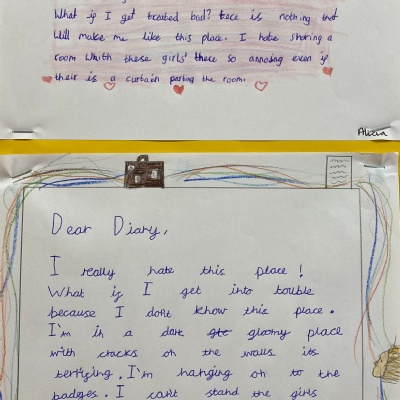 What if I get treated bad? there is nothing that
Will make me like this place. I hate sharing a
room whith these girls' there so annoing even if
their is a curtain parting the room.
Alicia
Dear Diary,
I really hate this place!
What if I get into touble
because I dont know this place.
I'm in a dark gloomy place
with cracks on the walls its
terfying. I'm hanging on to the
badges. I can't stand the girls